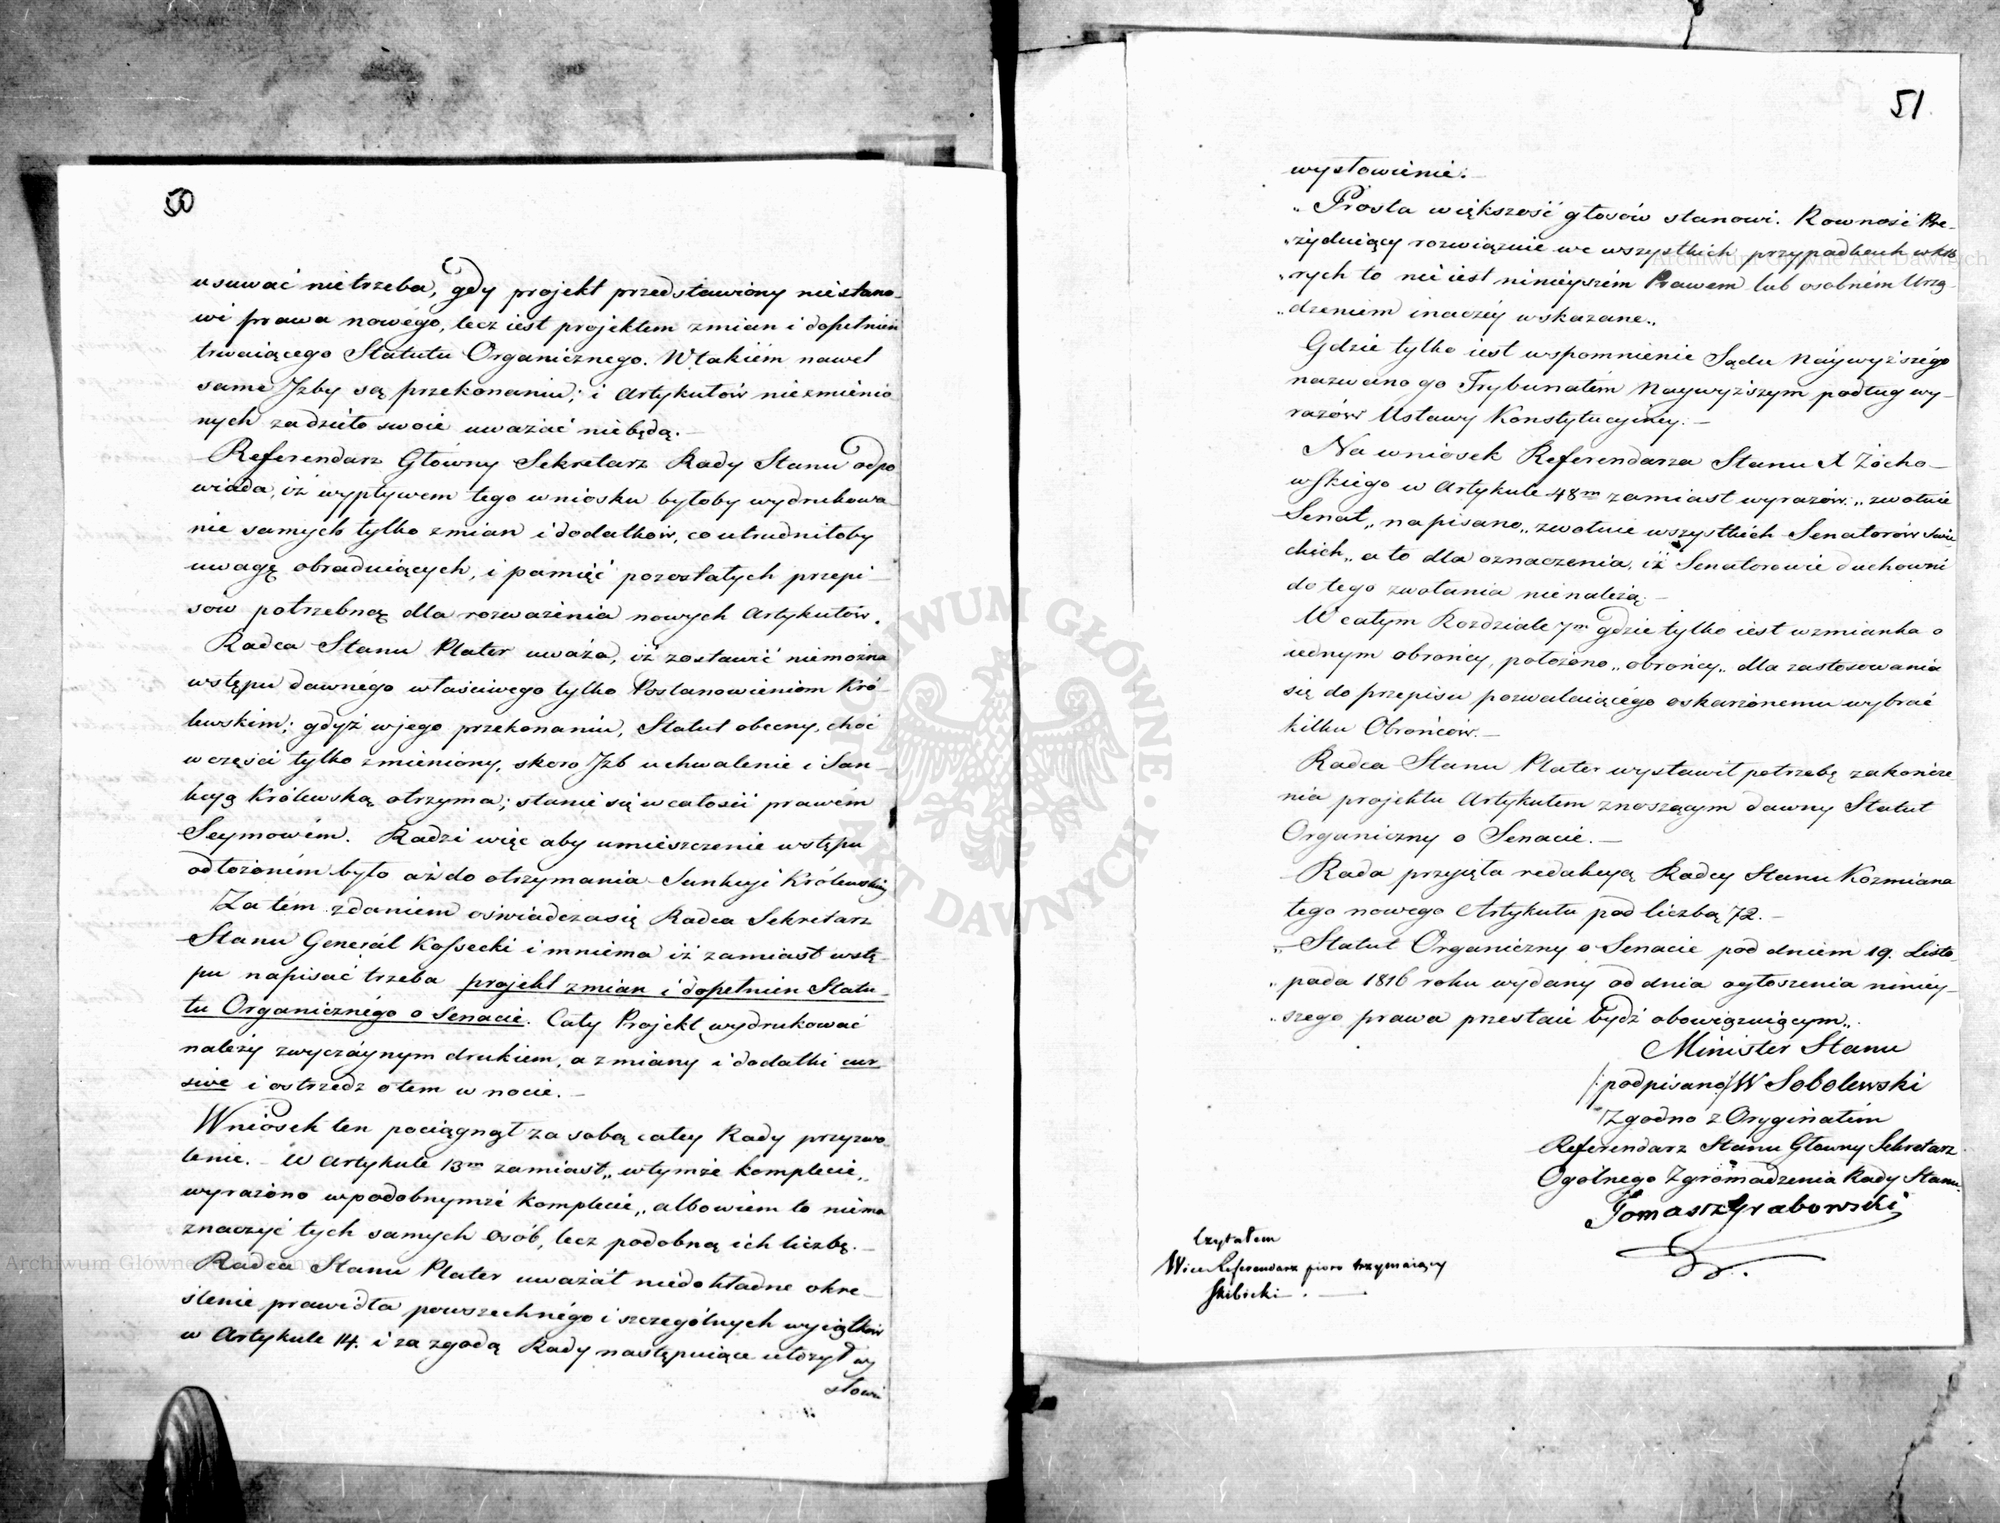 50
usuwać nietrzeba, gdy projekt przedstawiony niestano-
wi prawa nowego, lecz iest projektem zmian i dopełnień
trwaiącego Statutu Organicznego. W takiém nawet
same Izby są przekonaniu; i Artykułów niezmienio
nych za dzieło swoie uważać niebędą.—
Referendarz Główny Sekretarz Rady Stanu odpo
wiada, iż wypływem tego wniosku byłoby wydrukowa-
nie samych tylko zmian i dodatków, co utrudniłoby
uwagę obraduiących, i pamięć pozostałych przepi-
sow potrzebną dla rozważenia nowych Artykułów.
Radca Stanu Plater uważa, iż zostawić niemożna
wstępu dawnégo właściwego tylko Postanowieniom Kró-
lewskim; gdyż w jego przekonaniu, Statut obecny, choć
w części tylko zmieniony, skoro Izb uchwalenie i San-
kcyą Królewską otrzyma; stanie się w całości prawém
Seymowém. Radzi więc aby umieszczenie wstępu
odłożoném było aż do otrzymania Sankcyi Królewskiéy
Za tém zdaniem oświadcza się Radca Sekretarz
Stanu Generál Kossecki i mniema iż zamiast wstę-
pu napisać trzeba projekt zmian i dopełnień Statu-
tu Organicznégo o Senacie. Cały Projekt wydrukować
należy zwyczáynym drukiem, a zmiany i dodatki cur-
sive i ostrzedz o tem w nocie.—
Wniosek ten pociągnął za sobą całey Rady przyzwo-
lenie.— W Artykule 13m zamiast „wtymże komplecie„
wyrażono wpodobnymże komplecie„ albowiem to niema
znaczyć tych samych osób, lecz podobną ich liczbę.—
Radca Stanu Plater uważáł niedokładne okre-
ślenie prawidła powszechnégo i szczególnych wyiątków
w Artykule 14. i za zgodą Rady następuiące ułożył wy
słowie
51
wysłowienie.—
„Prosta większość głosów stanowi. Rowność Pre-
„zyduiący rozwiązuie we wszystkich przypadkach w któ
„rych to nie iest ninieyszém Prawem lub osobném Urzą-
„dzeniem inaczéy wskazane„
Gdzie tylko iest wspomnienie Sądu Náywyższégo
nazwano go Trybunałém Naywyższym podług wy-
razów Ustawy Konstytucyjnéy.—
Na wniosek Referendarza Stanu X Żocho-
wskiego w Artykule 48m zamiast wyrazów: „zwołuie
Senat„ napisano „zwołuie wszystkich Senatorów świe
ckich„ a to dla oznaczenia, iż Senatorowie duchowni
do tego zwołania nienależą.—
W całym Rozdziale 7m gdzie tylko iest wzmianka o
iednym obrońcy, położono „obrońcy„ dla zastosowania
się do przepisu pozwalaiącégo oskarżonemu wybrać
kilku Obrońców.—
Radca Stanu Plater wystawił potrzebę zakończe
nia projektu Artykułem znoszącym dawny Statut
Organiczny o Senacie.—
Rada przyięła redakcyą Radcy Stanu Kozmiana
tego nowego Artykułu pod liczbą 72.—
„Statut Organiczny o Senacie pod dniem 19. Listo-
„pada 1816 roku wydany od dnia ogłoszenia niniéy-
„szego prawa przestaie bydź obowiązuiącym„
Minister Stanu
/:podpisano:/ W Sobolewski
Zgodno z Oryginałém
Referendarz Stanu Główny Sekretarz
Ogólnego Zgromadzenia Rady Stanu
Tomasz Grabowski
Czytałem
Wice Referendarz pioro trzymaiący
Skibicki.—
Archiwum Główne Akt Dawnych
ARCHIWUM GŁÓWNE AKT DAWNYCH